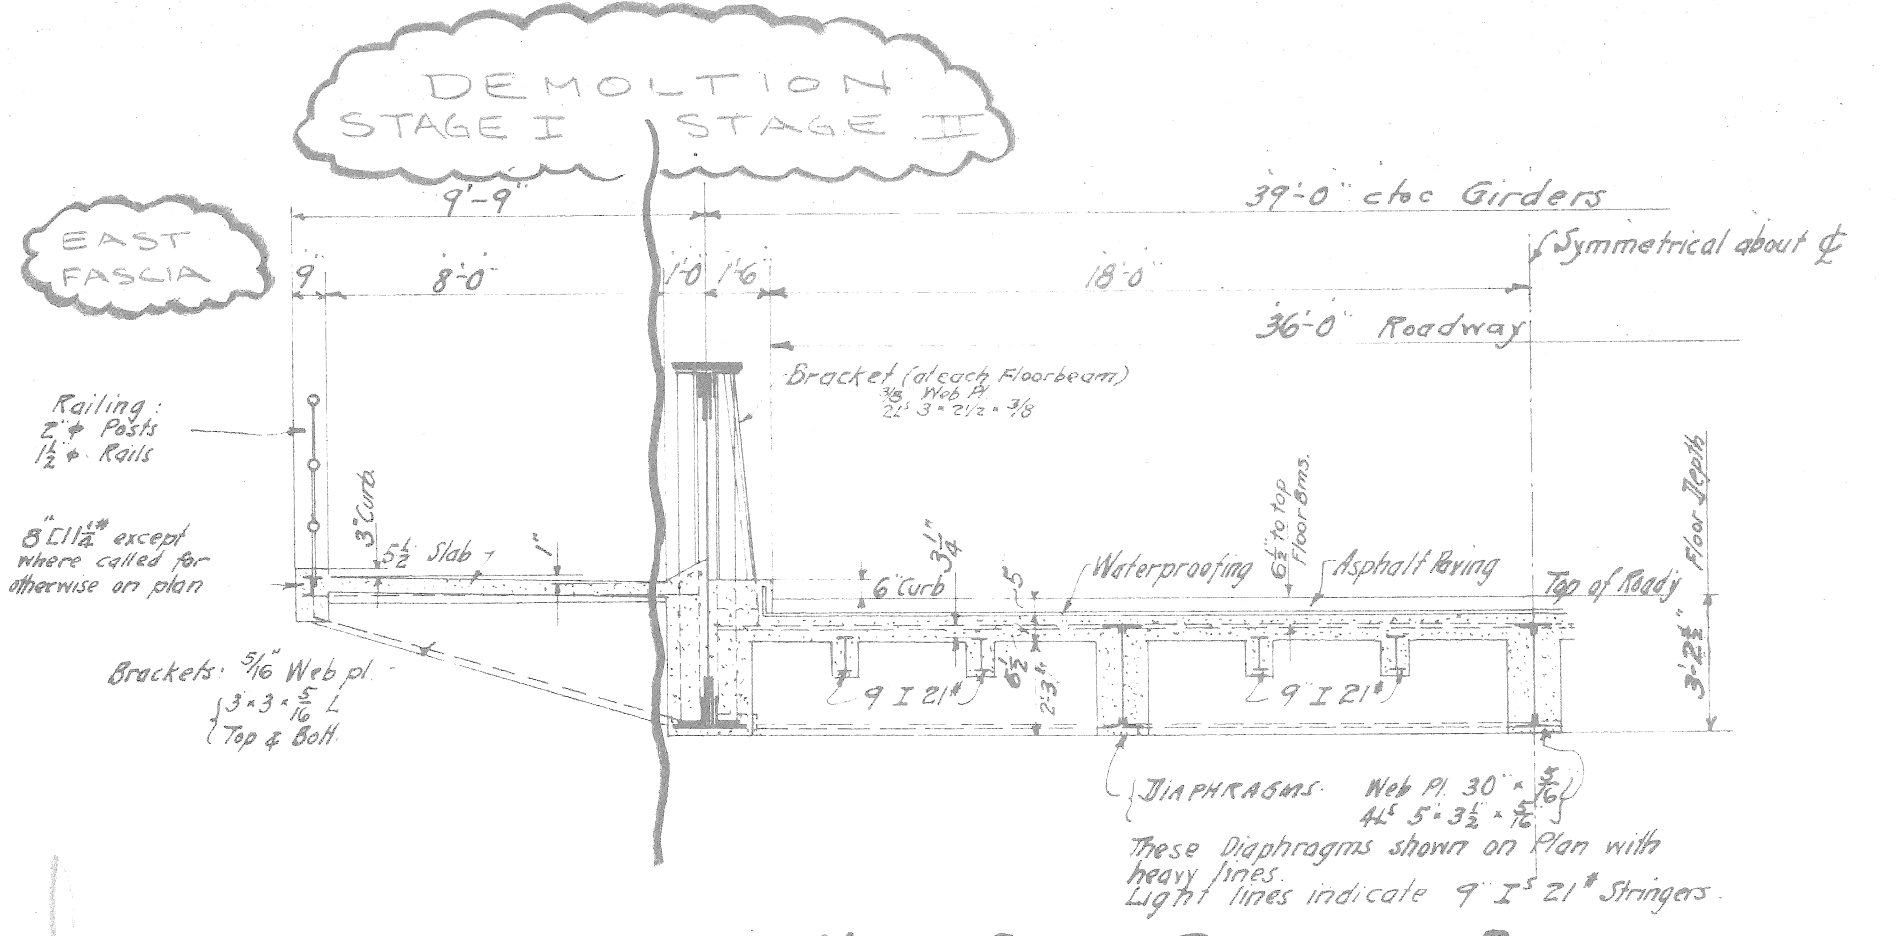 DEMOLTION
STAGE I STAGE II
9'-9"
39'-0" c to c Girders
EAST
FASCIA
Symmetrical about ℄
9"
8'-0"
1'-0
1'-6"
18'-0"
36'-0" Roadway
Bracket (at each Floorbeam)
3/8 Web Pl.
2Ls 3 × 2 1/2 × 3/8
Railing :
2" φ Posts
1 1/2" φ Rails
3" Curb
5 1/2 Slab
1"
8" [ 11 1/4# except
where called for
otherwise on plan
6" Curb
3 1/4"
5
Waterproofing
6 1/2" to top
Floor Bms.
Asphalt Paving
Top of Roady
Floor Depth
3'-2 1/2"
Brackets: 5/16" Web pl.
3 × 3 × 5/16 L
Top & Bott.
9 I 21#
6 1/2
2'-3"
9" I 21#
DIAPHRAGMS. Web Pl. 30" × 5/16
4Ls 5" × 3 1/2 × 5/16
These Diaphragms shown on Plan with
heavy lines.
Light lines indicate 9" Is 21# Stringers.